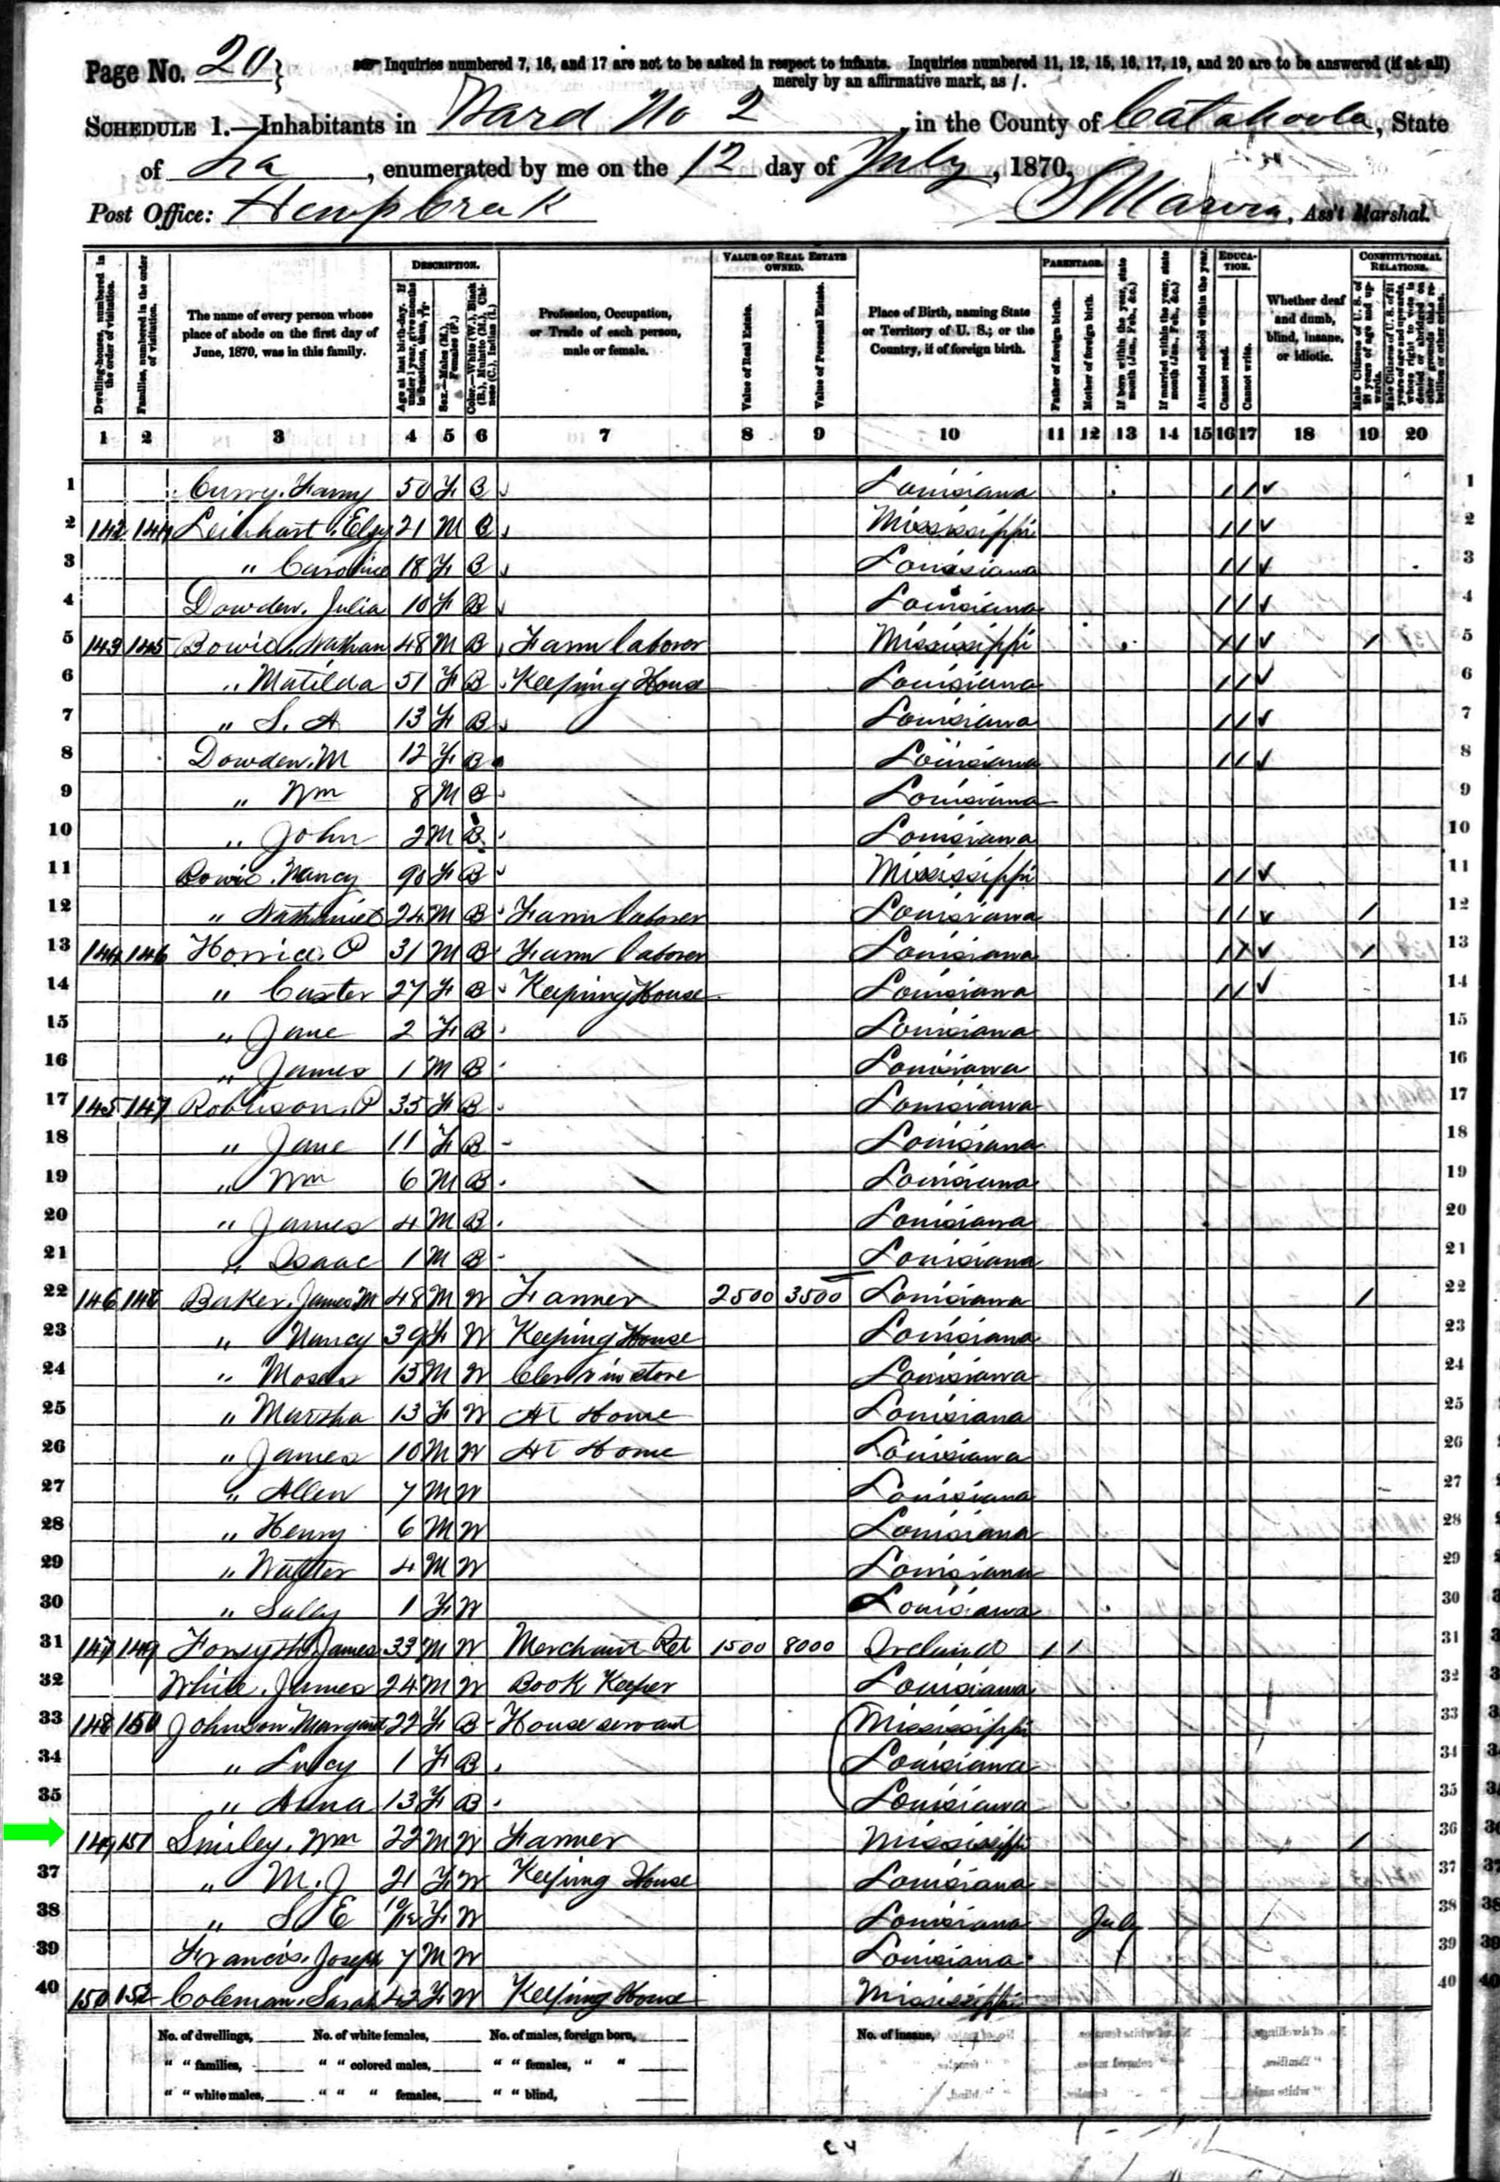 Page No. 20
Inquiries numbered 7, 16, and 17 are not to be asked in respect to infants. Inquiries numbered 11, 12, 15, 16, 17, 19, and 20 are to be answered (if at all)
merely by an affirmative mark, as /.
SCHEDULE 1.—Inhabitants in Ward No 2, in the County of Catahoola, State
of La, enumerated by me on the 12 day of July, 1870.
Post Office: Hemp Creek
Marvin, Ass't Marshal.
DESCRIPTION. VALUE OF REAL ESTATE OWNED. PARENTAGE. EDUCATION. CONSTITUTIONAL RELATIONS.
Dwelling-houses, numbered in the order of visitation.
Families, numbered in the order of visitation.
The name of every person whose place of abode on the first day of June, 1870, was in this family.
Age at last birth-day. If under 1 year, give months in fractions, thus, 3/12
Sex.—Males (M.), Females (F.)
Color.—White (W.), Black (B.), Mulatto (M.), Chinese (C.), Indian (I.)
Profession, Occupation, or Trade of each person, male or female.
Value of Real Estate.
Value of Personal Estate.
Place of Birth, naming State or Territory of U. S.; or the Country, if of foreign birth.
Father of foreign birth.
Mother of foreign birth.
If born within the year, state month (Jan., Feb., &c.)
If married within the year, state month (Jan., Feb., &c.)
Attended school within the year.
Cannot read.
Cannot write.
Whether deaf and dumb, blind, insane, or idiotic.
Male Citizens of U. S. of 21 years of age and upwards.
Male Citizens of U. S. of 21 years of age and upwards, whose right to vote is denied or abridged on other grounds than rebellion or other crime.
1 2 3 4 5 6 7 8 9 10 11 12 13 14 15 16 17 18 19 20
1 Curry, Fanny 50 F B Louisiana / / 1
2 142 144 Leinhart, Elzy 21 M B Mississippi / / 2
3 " Caroline 18 F B Louisiana / / 3
4 Dowden, Julia 10 F B Louisiana / / 4
5 143 145 Bowie, Nathan 48 M B Farm laborer Mississippi / / / 5
6 " Matilda 51 F B Keeping House Louisiana / / 6
7 " S. A 13 F B Louisiana / / 7
8 Dowden, M 12 F B Louisiana / / 8
9 " Wm 8 M B Louisiana 9
10 " John 2 M B Louisiana 10
11 Bowie, Nancy 90 F B Mississippi / / 11
12 " Nathaniel 24 M B Farm laborer Louisiana / / / 12
13 144 146 P 31 M B Farm laborer Louisiana / / / 13
14 " Caster 27 F B Keeping House Louisiana / / 14
15 " Jane 2 F B Louisiana 15
16 " James 1 M B Louisiana 16
17 145 147 Robinson, P 35 F B Louisiana 17
18 " Jane 11 F B Louisiana 18
19 " Wm 6 M B Louisiana 19
20 " James 4 M B Louisiana 20
21 " Isaac 1 M B Louisiana 21
22 146 148 Baker, James M 48 M W Farmer 2500 3500 Louisiana / 22
23 " Nancy 39 F W Keeping House Louisiana 23
24 " Moses 15 M W Clerk in store Louisiana 24
25 " Martha 13 F W At Home Louisiana 25
26 " James 10 M W At Home Louisiana 26
27 " Allen 7 M W Louisiana 27
28 " Henry 6 M W Louisiana 28
29 " Walter 4 M W Louisiana 29
30 " Sally 1 F W Louisiana 30
31 147 149 Forsyth, James 33 M W Merchant Ret 1500 8000 Ireland / / 31
32 White, James 24 M W Book Keeper Louisiana 32
33 148 150 Johnson, Margaret 22 F B House servant Mississippi 33
34 " Lucy 1 F B Louisiana 34
35 " Anna 13 F B Louisiana 35
36 149 151 Smiley, Wm 22 M W Farmer Mississippi / 36
37 " M. J 21 F W Keeping House Louisiana 37
38 " S E 10/12 F W Louisiana July 38
39 Francis, Joseph 7 M W Louisiana 39
40 150 152 Coleman, Sarah 42 F W Keeping House Mississippi 40
No. of dwellings, No. of white females, No. of males, foreign born, No. of insane,
" " families, " " colored males, " " females, " "
" " white males, " " " females, " " blind,